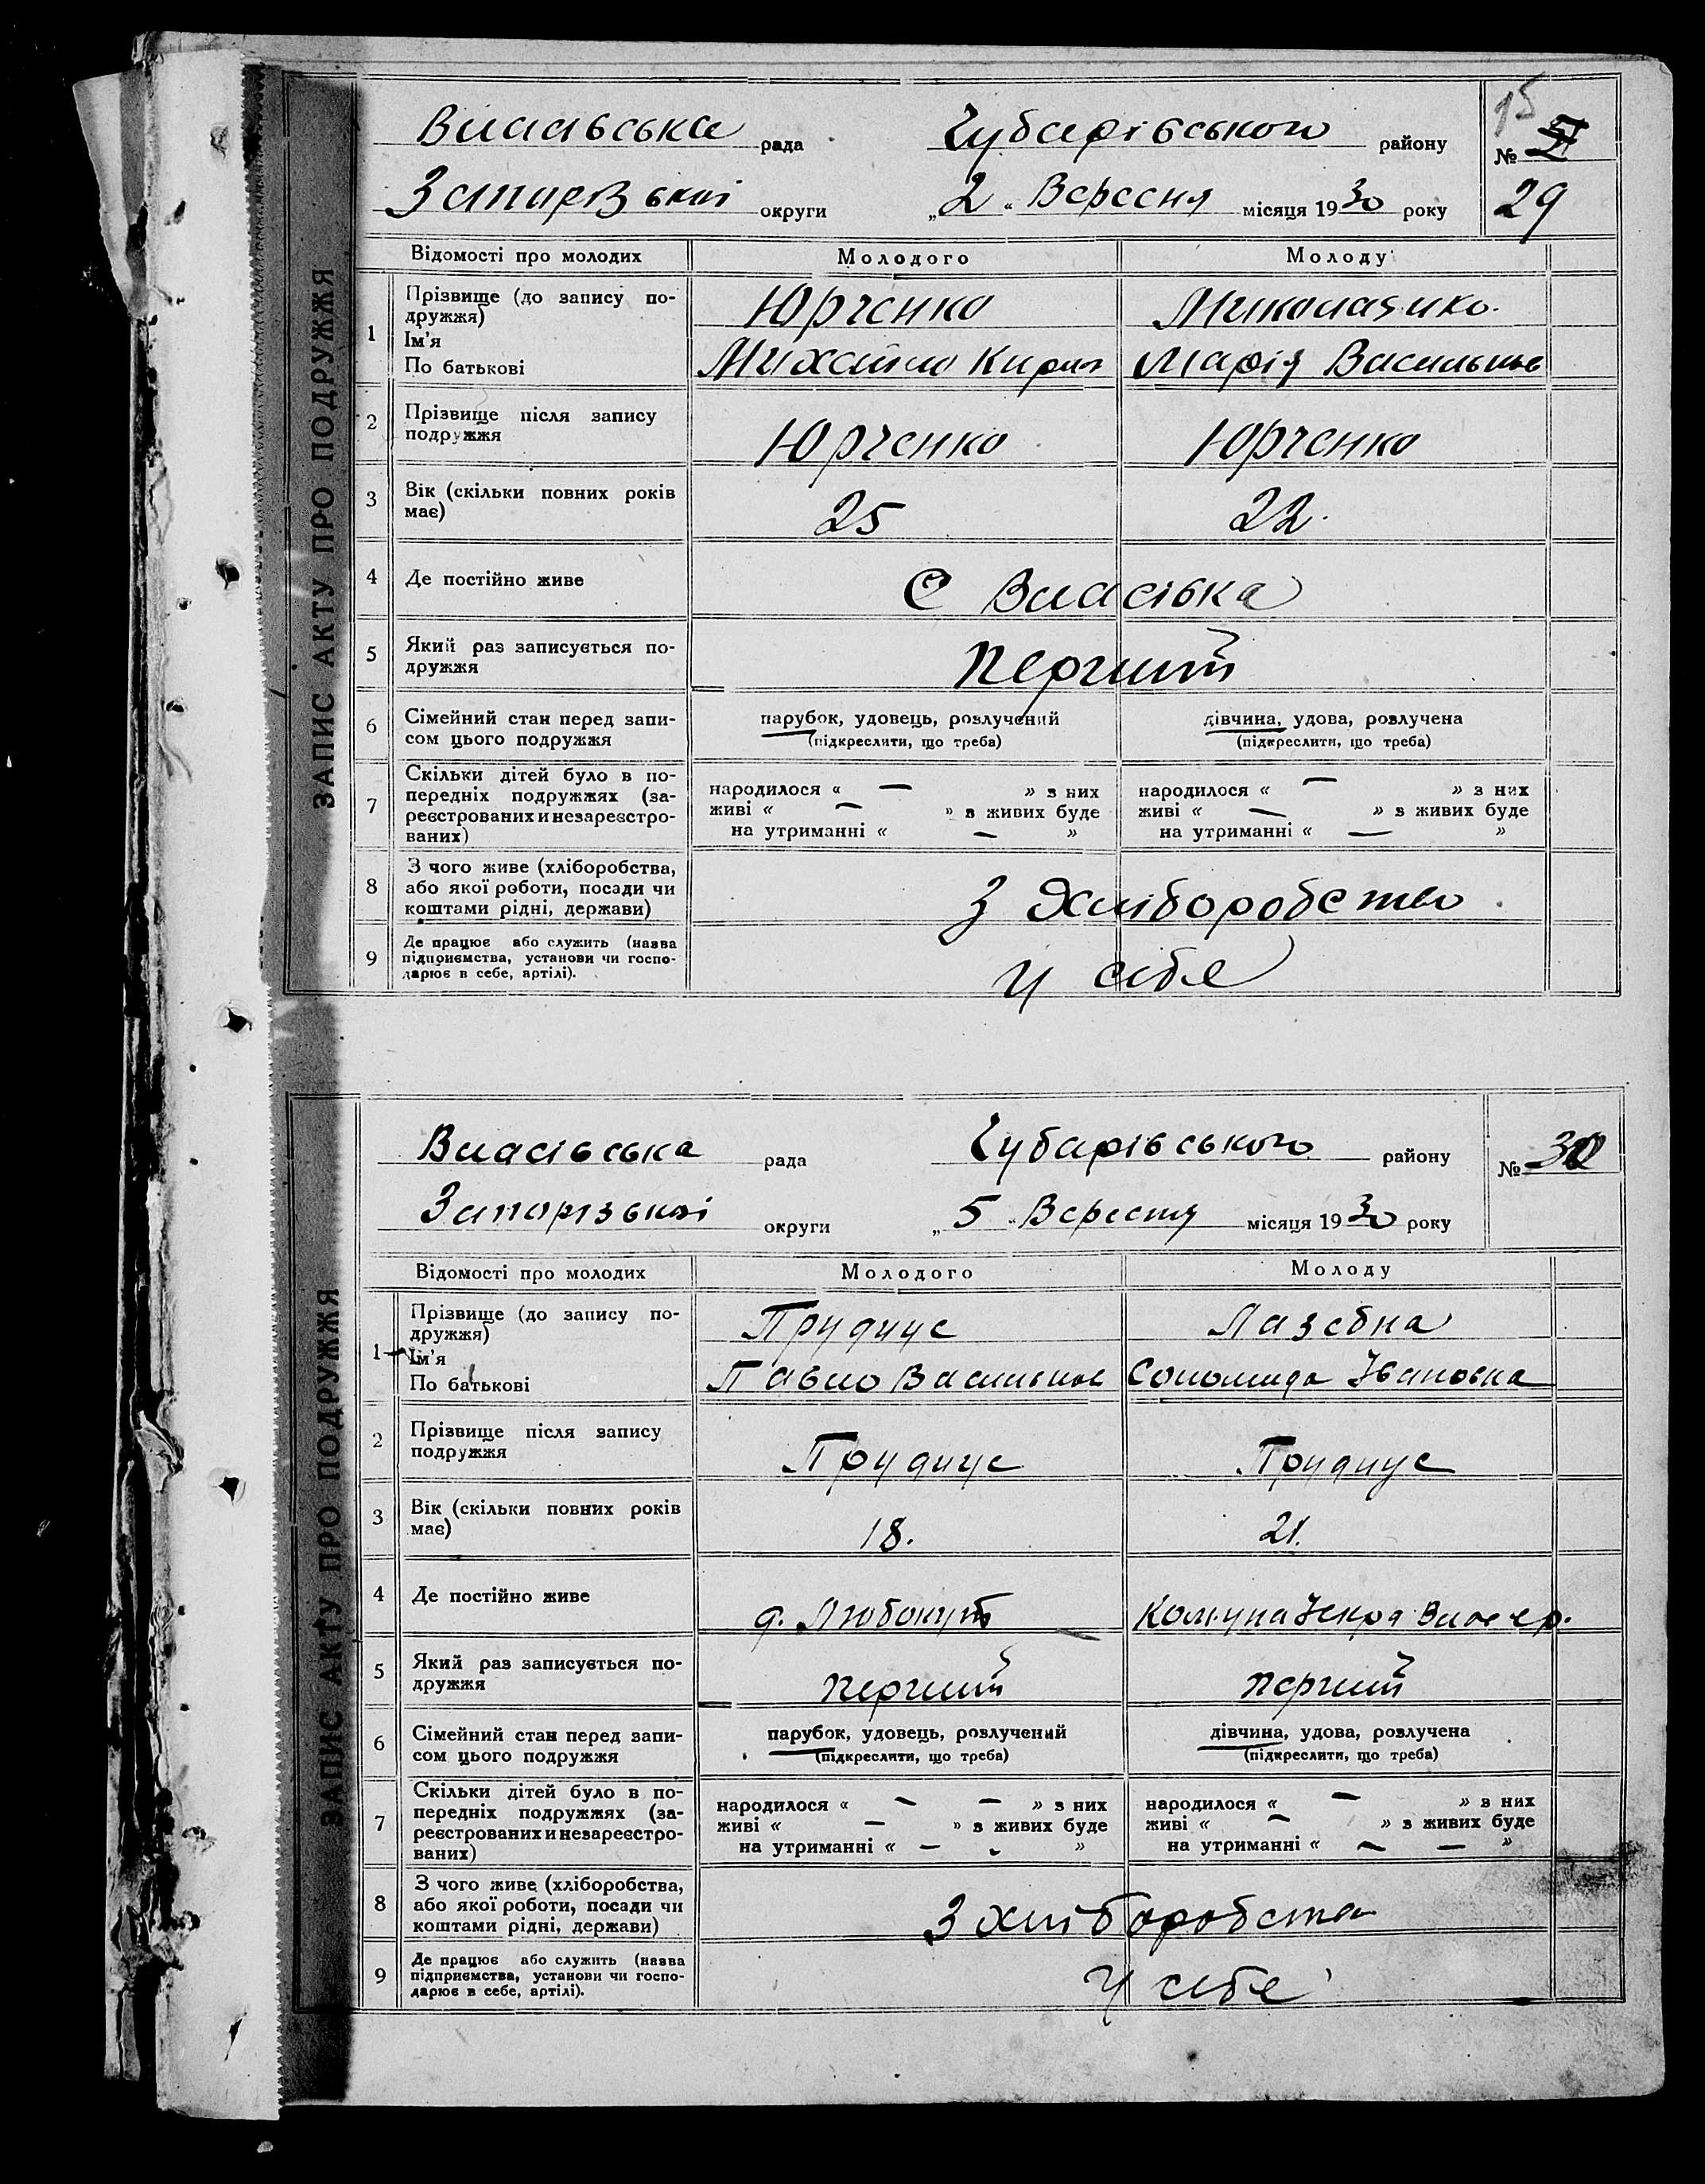 ЗАПИС АКТУ ПРО ПОДРУЖЖЯ
15
Власівська рада Чубарівського району №
Запорізької округи „2“ Вересня місяця 1930 року 29
Відомості про молодих Молодого Молоду
1 Прізвище (до запису по-
дружжя) Юрченко
Ім'я
По батькові Михайло Кирил Марія Васильов
2 Прізвище після запису
подружжя Юрченко Юрченко
3 Вік (скільки повних років
має) 25 22.
4 Де постійно живе С Власівка
5 Який раз записується по-
дружжя перший
6 Сімейний стан перед запи-
сом цього подружжя парубок, удовець, розлучений дівчина, удова, розлучена
(підкреслити, що треба) (підкреслити, що треба)
7 Скільки дітей було в по-
передніх подружжях (за-
реєстрованих и незареєстро-
ваних)
народилося « — » з них народилося « — » з них
живі « — » з живих буде живі « — » з живих буде
на утриманні « — » на утриманні « — »
8 З чого живе (хліборобства,
або якої роботи, посади чи
коштами рідні, держави) З Хліборобство
9 Де працює або служить (назва
підприємства, установи чи госпо-
дарює в себе, артілі). у сібе
ЗАПИС АКТУ ПРО ПОДРУЖЖЯ
Власівська рада Чубарівського району № 30
Запорізької округи „5“ Вересня місяця 1930 року
Відомості про молодих Молодого Молоду
1 Прізвище (до запису по-
дружжя) Прудиус Лазебна
Ім'я
По батькові Павло Васильов Соломида Івановна
2 Прізвище після запису
подружжя Прудиус Прудиус
3 Вік (скільки повних років
має) 18. 21.
4 Де постійно живе Комуна Іскра
5 Який раз записується по-
дружжя перший перший
6 Сімейний стан перед запи-
сом цього подружжя парубок, удовець, розлучений дівчина, удова, розлучена
(підкреслити, що треба) (підкреслити, що треба)
7 Скільки дітей було в по-
передніх подружжях (за-
реєстрованих и незареєстро-
ваних)
народилося « — — » з них народилося « — » з них
живі « — » з живих буде живі « — » з живих буде
на утриманні « — - » на утриманні « — — »
8 З чого живе (хліборобства,
або якої роботи, посади чи
коштами рідні, держави) З хліборобства
9 Де працює або служить (назва
підприємства, установи чи госпо-
дарює в себе, артілі). у сібе